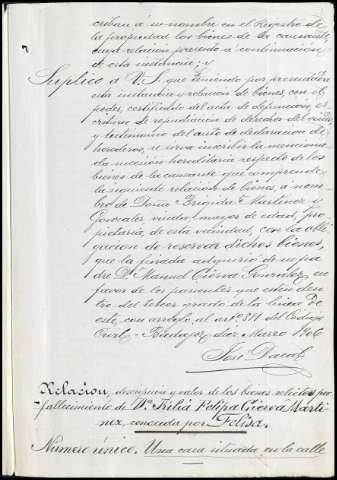 criban á su nombre en el Registro de
la propiedad los bienes de la causante,
cuya relación pareada á continuación
de esta instancia; y
Suplico á V.S. que teniendo por presentada
esta instancia y relación de bienes, con el
poder, certificado del acta de defunción, es
critura de repudiación de derechos del viudo
y testimonio del auto de declaracion de
herederos, se sirva inscribir la menciona
da sucesión hereditaria respecto de los
bienes de la causante que comprende
la siguiente relación de bienes, á nom
bro de Doña Brigida Martinez y
Gonzalez viuda, mayor de edad, pro
pietaria, de esta vecindad, con la obli
gacion de reservar dichos bienes,
que la finada adquirió de su pa
dre Dn Manuel Gonzalez, en
favor de los parientes que estén den
tro del tercer grado de la linea de
este, con arreglo al art. 811 del Código
Civil. Badajoz, Marzo 1906
José
Relación, descripción y valor de los bienes relictos por
fallecimiento de Dª Felipa Marti
nez, conocida por Felisa.
Número único. Una casa situada en la calle